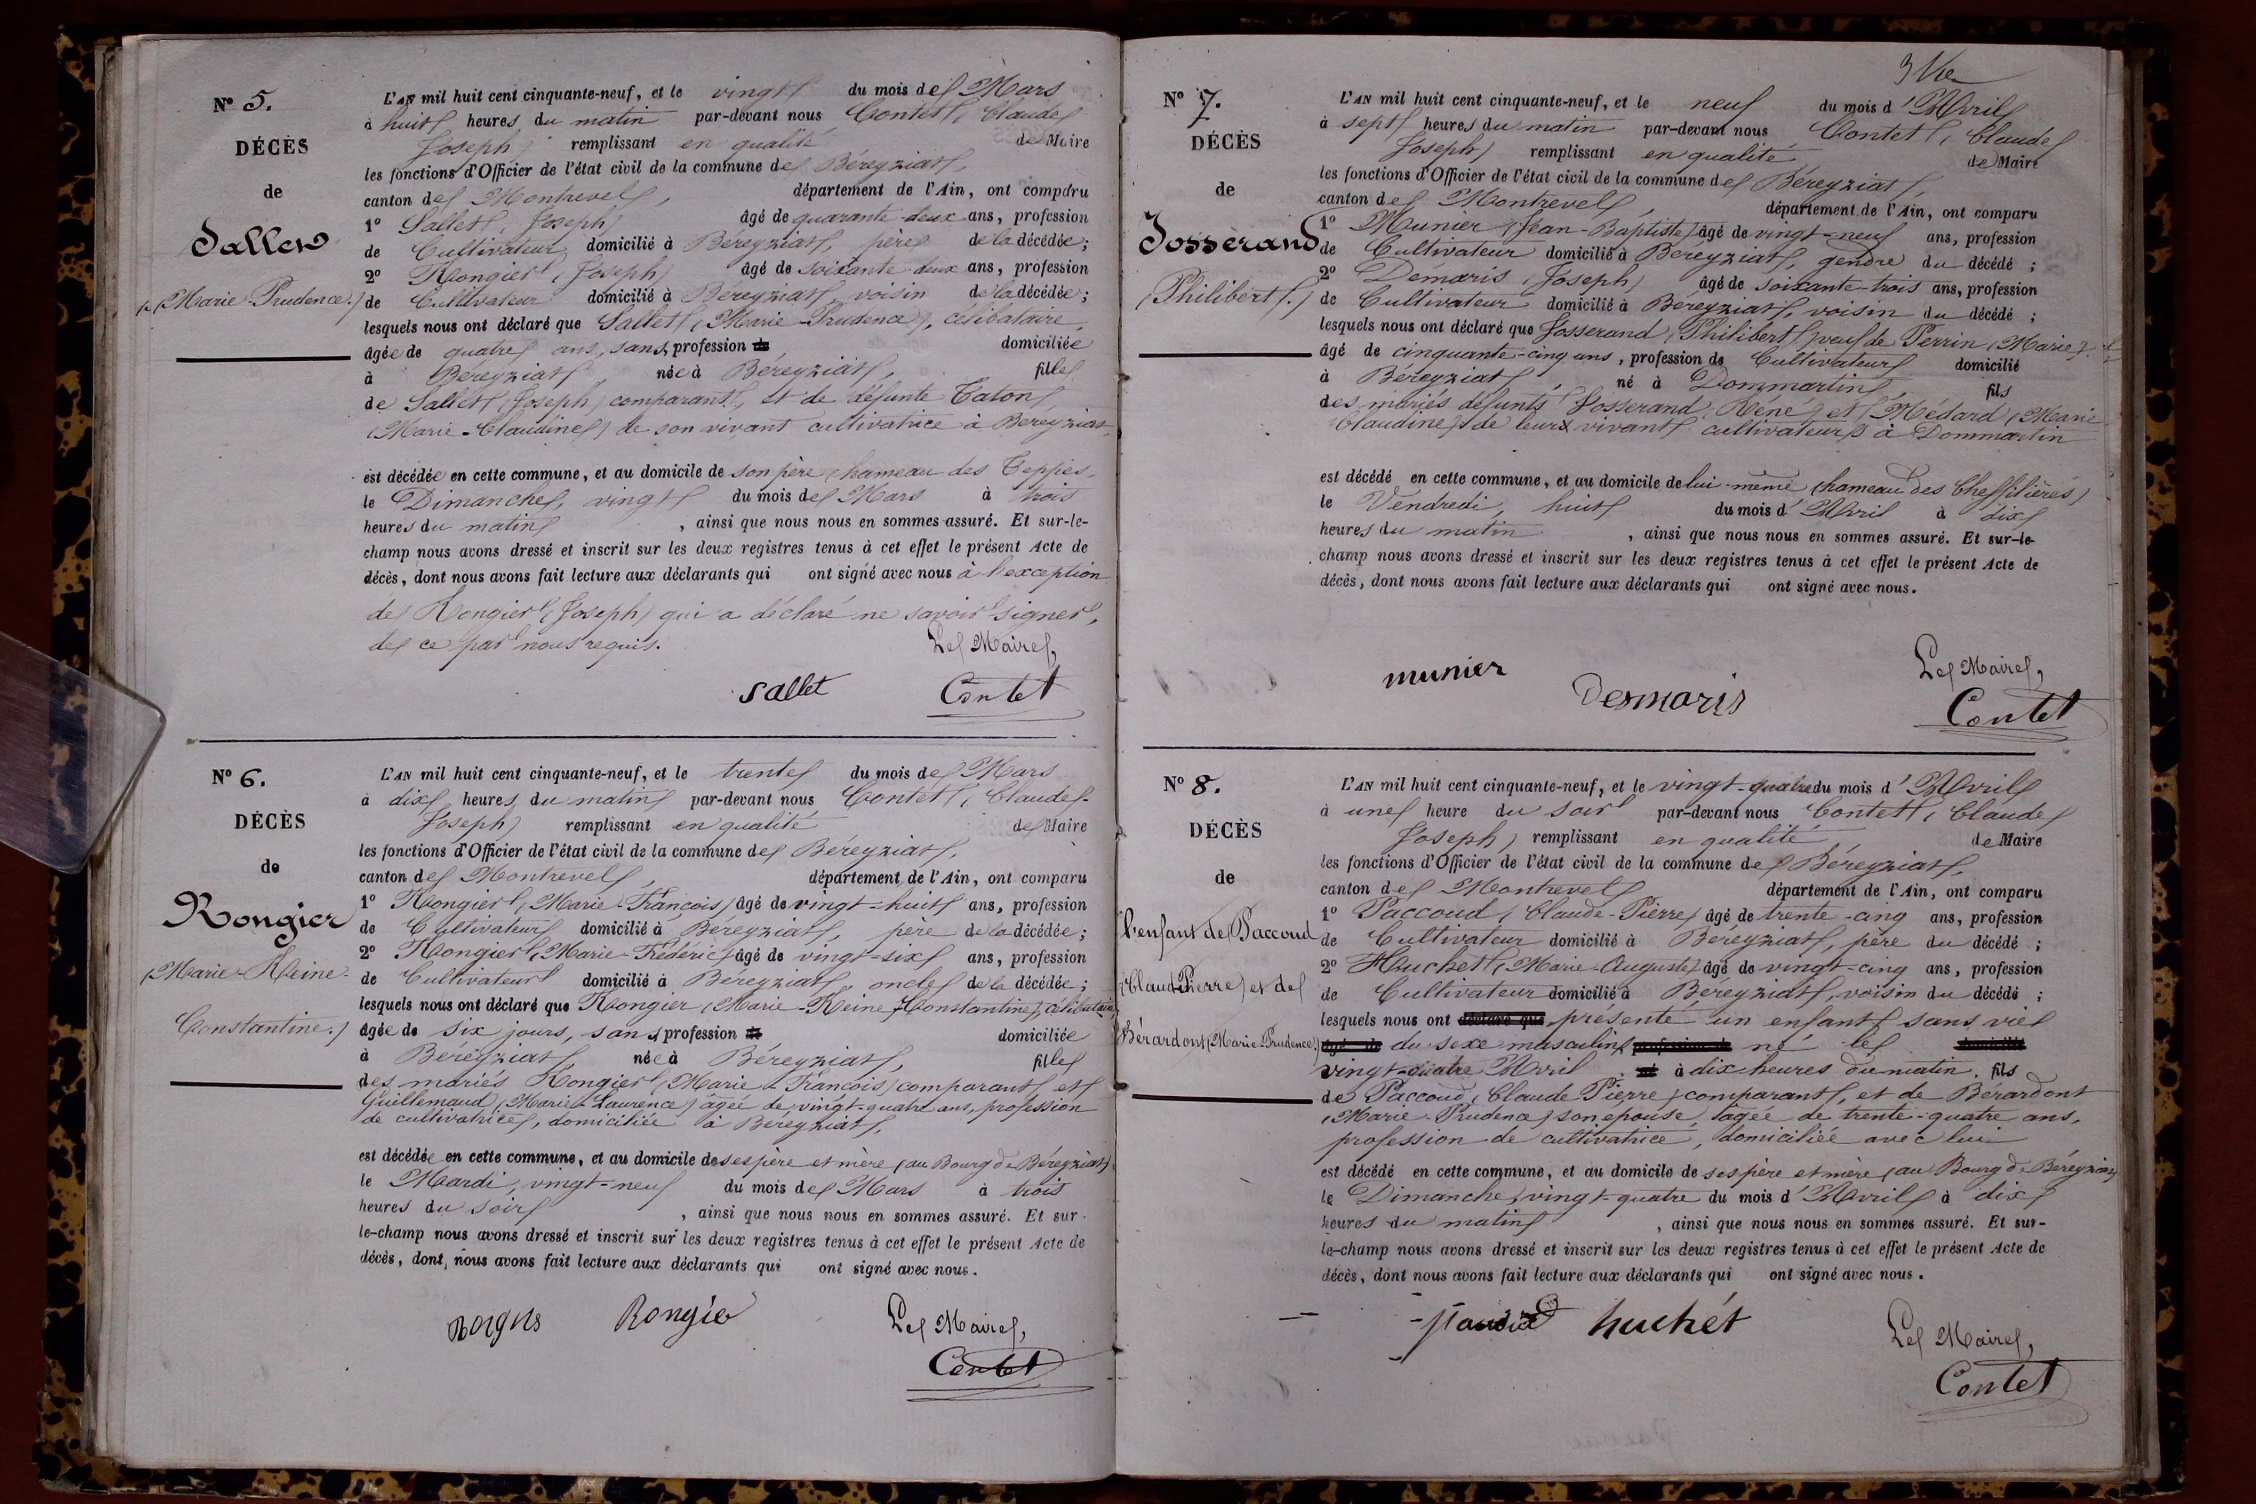 N° 5.
DÉCÈS
de
Sallet
(Marie-Prudence.)
L'AN mil huit cent cinquante-neuf, et le vingt du mois de Mars
à huit heures du matin par-devant nous Contet (Claude
Joseph) remplissant en qualité de Maire
les fonctions d'Officier de l'état civil de la commune de Béreyziat,
canton de Montrevel, département de l'Ain, ont comparu
1° Sallet (Joseph) âgé de quarante-deux ans, profession
de Cultivateur domicilié à Béreyziat, père de la décédée;
2° Rongier (Joseph) âgé de soixante-deux ans, profession
de Cultivateur domicilié à Béreyziat, voisin de la décédée;
lesquels nous ont déclaré que Sallet (Marie-Prudence), célibataire,
âgée de quatre ans, sans profession domiciliée
à Béreyziat, née à Béreyziat, fille
de Sallet (Joseph) comparant, et de défunte Caton
(Marie-Claudine) de son vivant cultivatrice à Béreyziat,
est décédée en cette commune, et au domicile de son père (hameau des Teppes,
le Dimanche, vingt du mois de Mars à trois
heures du matin, ainsi que nous nous en sommes assuré. Et sur-le-
champ nous avons dressé et inscrit sur les deux registres tenus à cet effet le présent Acte de
décès, dont nous avons fait lecture aux déclarants qui ont signé avec nous à l'exception
de Rongier (Joseph) qui a déclaré ne savoir signer,
de ce par nous requis.
Le Maire,
Sallet Contet
N° 6.
DÉCÈS
de
Rongier
(Marie-Reine-
Constantine.)
L'AN mil huit cent cinquante-neuf, et le trente du mois de Mars
à dix heures du matin par-devant nous Contet (Claude-
Joseph) remplissant en qualité de Maire
les fonctions d'Officier de l'état civil de la commune de Béreyziat,
canton de Montrevel, département de l'Ain, ont comparu
1° Rongier (Marie-François) âgé de vingt-huit ans, profession
de Cultivateur domicilié à Béreyziat, père de la décédée;
2° Rongier (Marie-Frédéric) âgé de vingt-six ans, profession
de Cultivateur domicilié à Béreyziat, oncle de la décédée;
lesquels nous ont déclaré que Rongier (Marie-Reine-Constantine), célibataire,
âgée de six jours, sans profession domiciliée
à Béreyziat, née à Béreyziat, fille
des mariés Rongier (Marie-François) comparant, et
Guillemaud (Marie-Laurence) âgée de vingt-quatre ans, profession
de cultivatrice, domiciliée à Béreyziat,
est décédée en cette commune, et au domicile de ses père et mère (au Bourg de Béreyziat)
le Mardi, vingt-neuf du mois de Mars à trois
heures du soir, ainsi que nous nous en sommes assuré. Et sur-
le-champ nous avons dressé et inscrit sur les deux registres tenus à cet effet le présent Acte de
décès, dont nous avons fait lecture aux déclarants qui ont signé avec nous.
Le Maire,
Contet
N° 7.
DÉCÈS
de
Josserand
(Philibert.)
L'AN mil huit cent cinquante-neuf, et le neuf du mois d'Avril
à sept heures du matin par-devant nous Contet (Claude
Joseph) remplissant en qualité de Maire
les fonctions d'Officier de l'état civil de la commune de Béreyziat,
canton de Montrevel, département de l'Ain, ont comparu
1° Munier (Jean-Baptiste) âgé de vingt-neuf ans, profession
de Cultivateur domicilié à Béreyziat, gendre du décédé;
2° Démaris (Joseph) âgé de soixante-trois ans, profession
de Cultivateur domicilié à Béreyziat, voisin du décédé;
lesquels nous ont déclaré que Josserand (Philibert) veuf de Perrin (Marie),
âgé de cinquante-cinq ans, profession de Cultivateur domicilié
à Béreyziat, né à Dommartin, fils
des mariés défunts Josserand (Réné) et Médard (Marie
Claudine) de leurs vivants cultivateurs à Dommartin
est décédé en cette commune, et au domicile de lui-même (hameau des Cheffilières)
le Vendredi, huit du mois d'Avril à dix
heures du matin, ainsi que nous nous en sommes assuré. Et sur-le-
champ nous avons dressé et inscrit sur les deux registres tenus à cet effet le présent Acte de
décès, dont nous avons fait lecture aux déclarants qui ont signé avec nous.
Le Maire,
munier Desmaris Contet
N° 8.
DÉCÈS
de
l'enfant de Paccoud
(Claude-Pierre) et de
Bérardont (Marie-Prudence.)
L'AN mil huit cent cinquante-neuf, et le vingt-quatre du mois d'Avril
à une heure du soir par-devant nous Contet (Claude
Joseph) remplissant en qualité de Maire
les fonctions d'Officier de l'état civil de la commune de Béreyziat,
canton de Montrevel département de l'Ain, ont comparu
1° Paccoud (Claude-Pierre) âgé de trente-cinq ans, profession
de Cultivateur domicilié à Béreyziat, père du décédé;
2° Huchet (Marie-Auguste) âgé de vingt-cinq ans, profession
de Cultivateur domicilié à Béreyziat, voisin du décédé;
lesquels nous ont présenté un enfant sans vie
du sexe masculin, né le
vingt-quatre Avril à dix heures du matin, fils
de Paccoud (Claude Pierre) comparant, et de Bérardont
(Marie-Prudence) son épouse, âgée de trente-quatre ans,
profession de cultivatrice, domiciliée avec lui
est décédé en cette commune, et au domicile de ses père et mère (au Bourg de Béreyziat)
le Dimanche, vingt-quatre du mois d'Avril à dix
heures du matin, ainsi que nous nous en sommes assuré. Et sur-
le-champ nous avons dressé et inscrit sur les deux registres tenus à cet effet le présent Acte de
décès, dont nous avons fait lecture aux déclarants qui ont signé avec nous.
huchét
Le Maire,
Contet